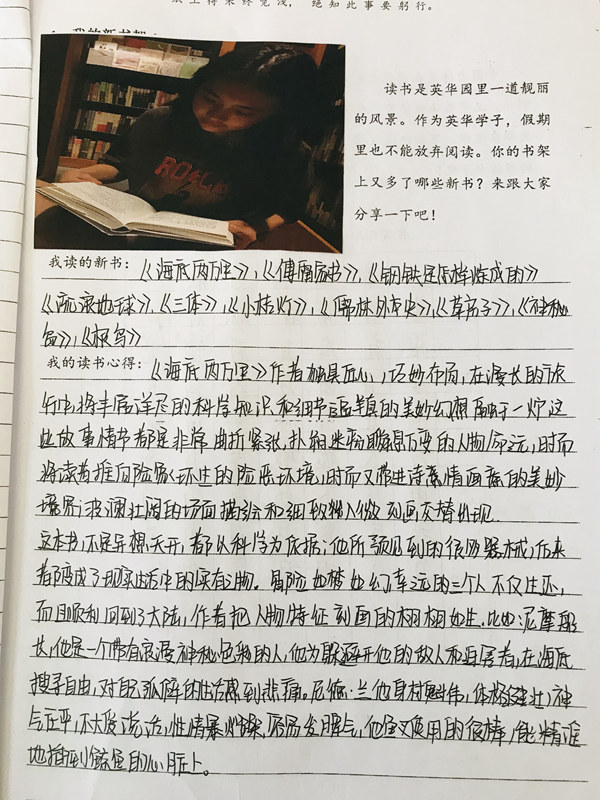 纸上得来终觉浅，绝知此事要躬行。
我的新书架
ROSC
读书是英华园里一道靓丽
的风景。作为英华学子，假期
里也不能放弃阅读。你的书架
上又多了哪些新书？来跟大家
分享一下吧！
我读的新书：《海底两万里》，《傅雷家书》，《钢铁是怎样炼成的》
《流浪地球》，《三体》，《小桔灯》，《儒林外史》，《草房子》，《神秘
岛》，《根鸟》
我的读书心得：《海底两万里》作者独具匠心，巧妙布局，在漫长的旅
行中，将丰富洋飞的科学知识和细节逼真的美妙幻想融于一炉这
些故事情节都是非常曲折紧张，扑朔迷离瞬息万变的人物命运，时而
将读者推向险象环生的险恶环境，时而又带进诗意情画意的美妙
境界；波澜壮阔的场面描绘和细致入微刻画交替出现.
这本书，不是异想天开，都以科学为依据；他所预见到的很多器械，后来
都变成了现实生活中的实有之物。冒险如梦如幻，幸运的三个人不仅生还，
而且顺利回到了大陆，作者把人物特征刻画的栩栩如生.比如：尼摩船
长，他是一个带有浪漫神秘色彩的人，他为躲避开他的敌人和迫害者，在海底
搜寻自由，对自己孤僻的生活感到悲痛。尼德·兰他身材魁伟，体格健壮，神
气庄严，不大爱说话，性情暴燥，容易发脾气，他鱼叉使用的很棒，能精准
地插到鲸鱼的心脏上。